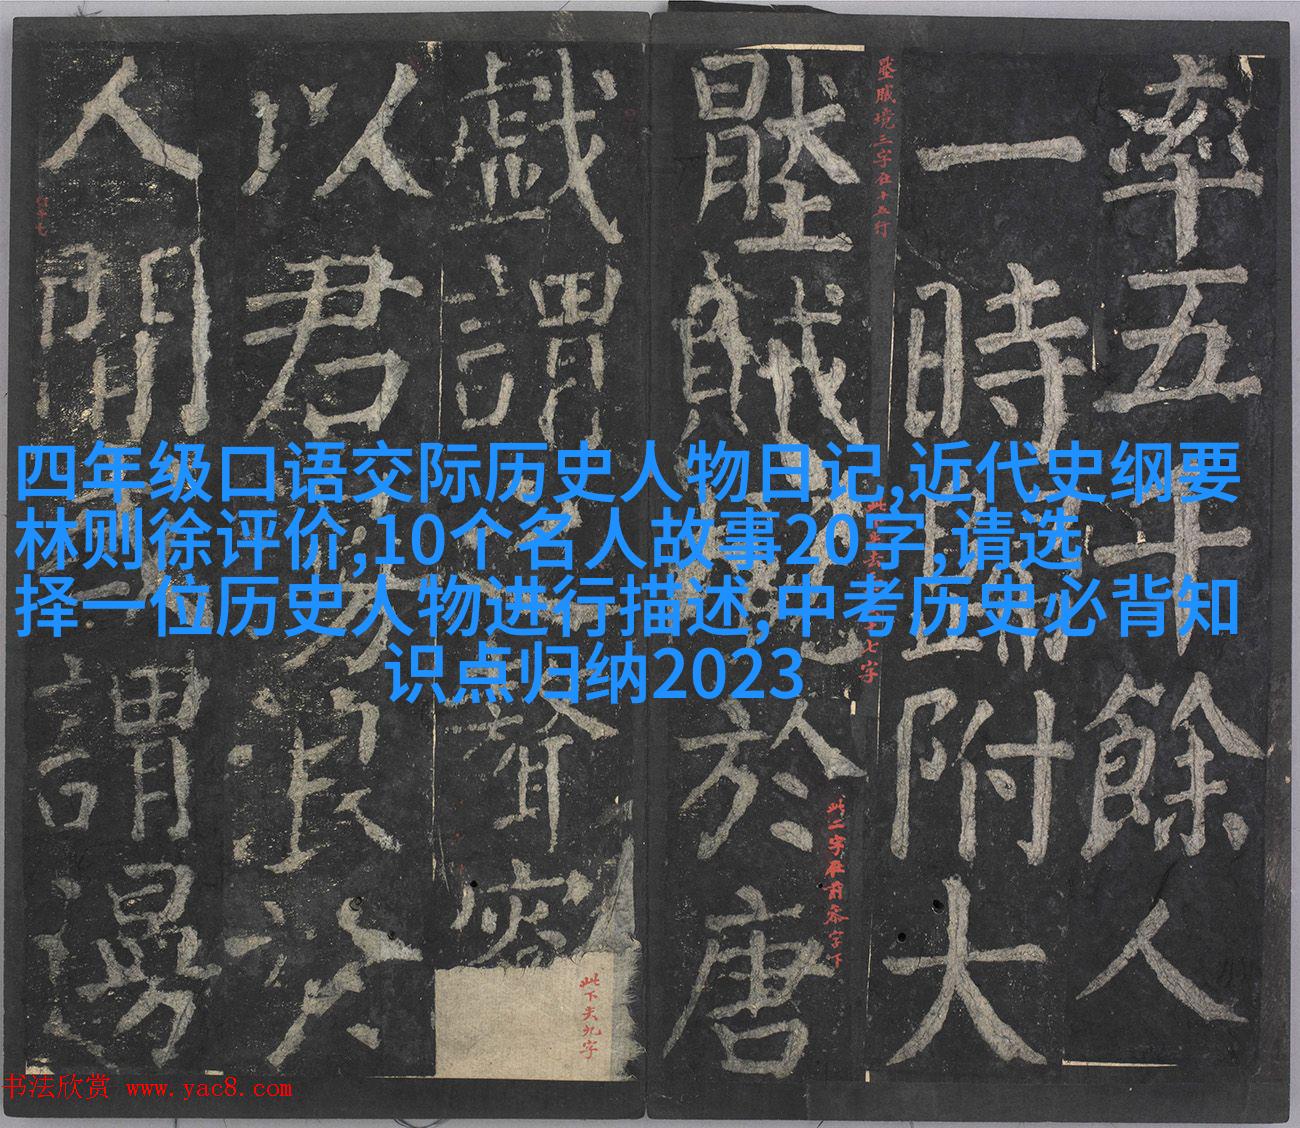 率五十餘人
一時 附大
壓賊 於唐
戲謂 聱客
以君 浪於
人 謂
壓賊境三字在十五行
此二字在前 字下
此下失九字
四年级口语交际历史人物日记,近代史纲要
林则徐评价,10个名人故事20字,请选
择一位历史人物进行描述,中考历史必背知
识点归纳2023
书法欣赏 www.yac8.com